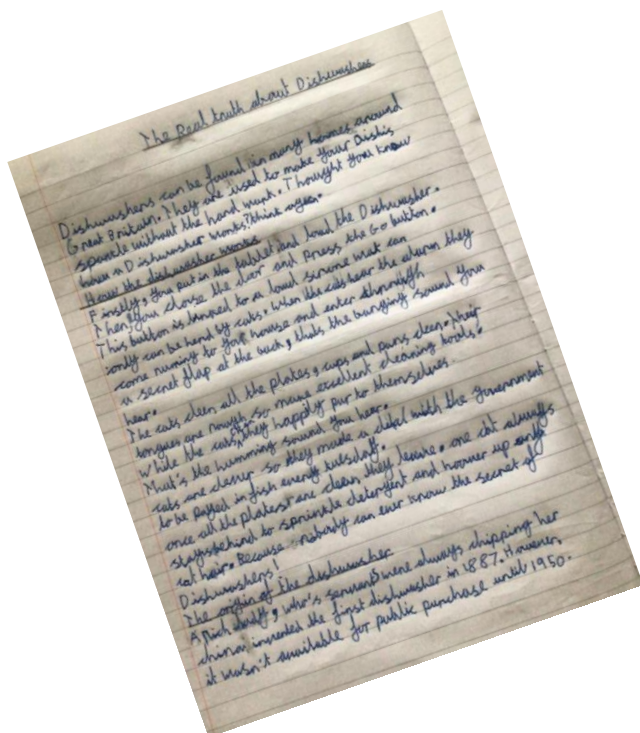 The Real truth about Dishwashers
Dishwashers can be found in many homes around
Great Britain. They are used to make your Dishis
sparkle without the hand work. Thought you know
how a Dishwasher works? think again.
How the dishwasher works
Firstly, you put in the tablet and load the Dishwasher.
Then, you close the door and press the Go button.
This button is linned to a loud sirene wat can
only can be herd by cats. When the cats hear the alurm they
come runing to your house and enter through
a secret flap at the back, thats the banging sound you
hear.
The cats cleen all the plates, cups and pans cleen. Their
tongues are rough so make excellent cleaning tools.
While the cats they happily pur to themselves
That's the humming sound you hear.
cats are clever so they made a deal with the government
to be payed in fish every tuesday.
once all the plates are clean they leave. one cat always
stays behind to sprinkle detergent and hoover up any
cat hair. Because nobody can ever know the secret of
Dishwashers!
The origin of the dishwasher
A rich lady, who's servants were always chipping her
china invented the first dishwasher in 1887. However,
it wasn't available for public purchase until 1950.